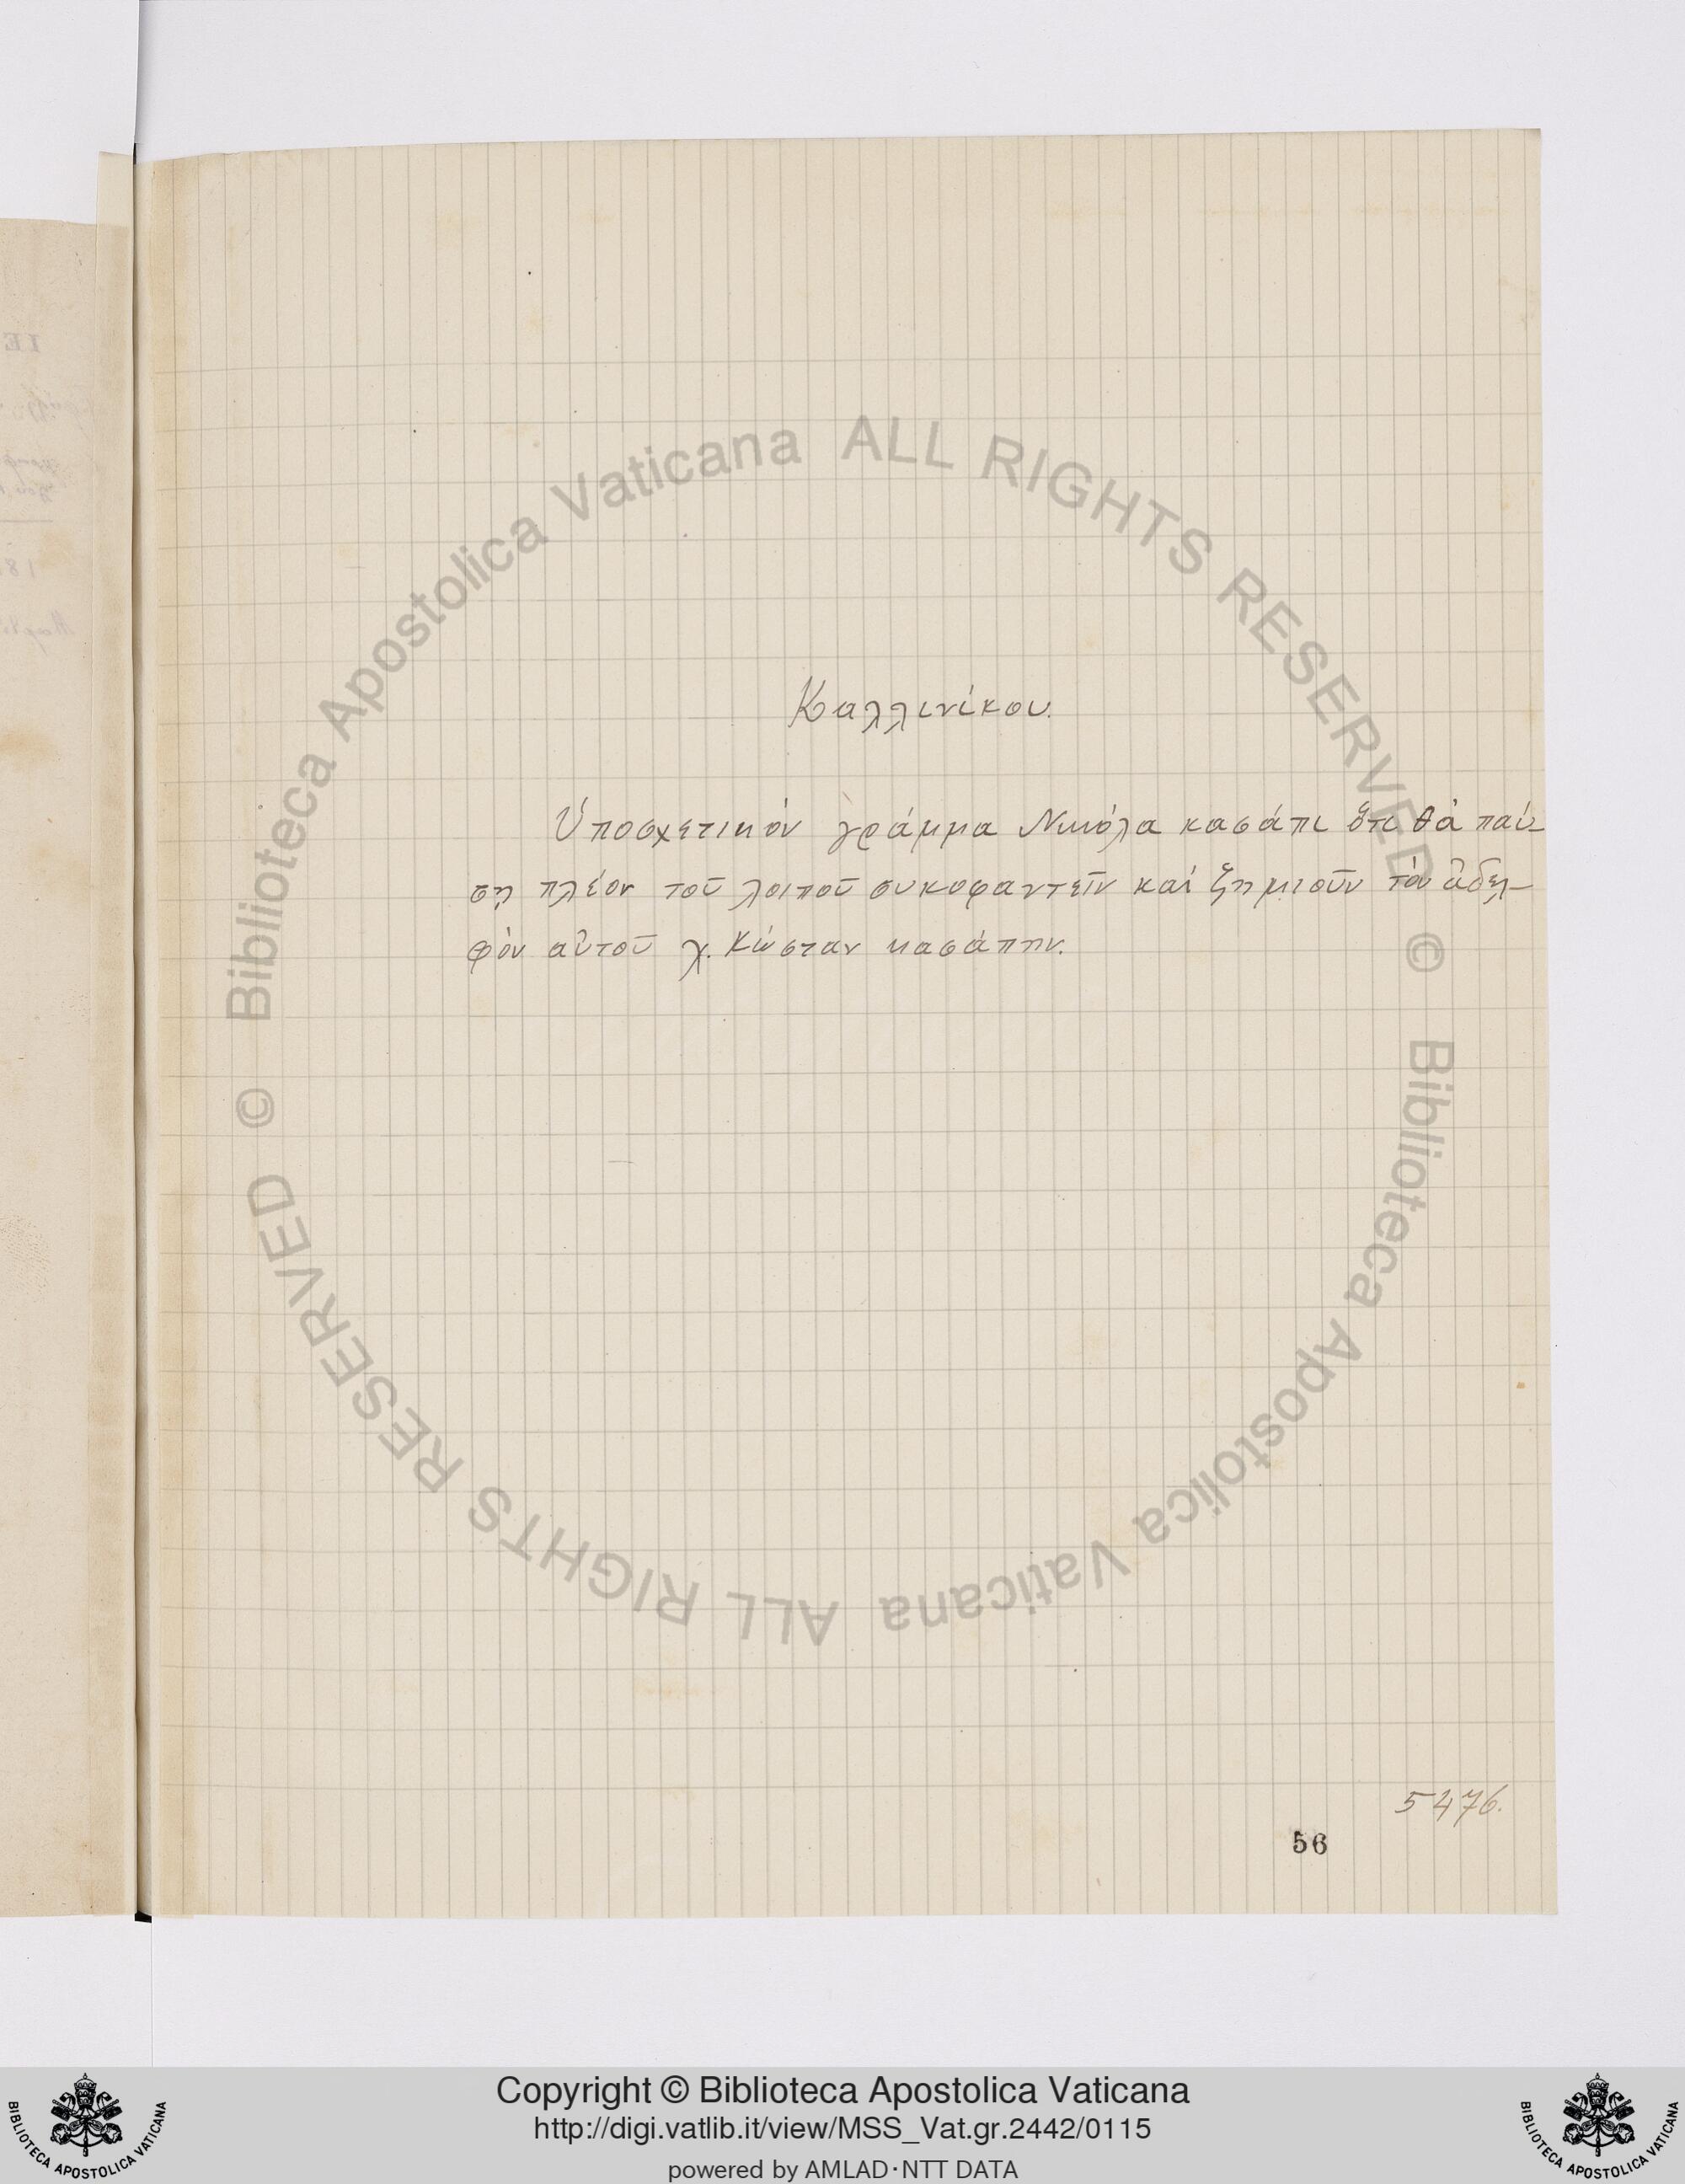 Καλλινίκου.
Ὑποσχετικὸν γράμμα Νικόλα κασάπι ὅτι θὰ παύ-
σῃ πλέον τοῦ λοιποῦ συκοφαντεῖν καὶ ζημιοῦν τὸν ἀδελ-
φὸν αὐτοῦ χ. Κώσταν κασάπην.
5476.
56
© Biblioteca Apostolica Vaticana ALL RIGHTS RESERVED
© Biblioteca Apostolica Vaticana ALL RIGHTS RESERVED
Copyright © Biblioteca Apostolica Vaticana
http://digi.vatlib.it/view/MSS_Vat.gr.2442/0115
powered by AMLAD·NTT DATA
BIBLIOTECA APOSTOLICA VATICANA
BIBLIOTECA APOSTOLICA VATICANA